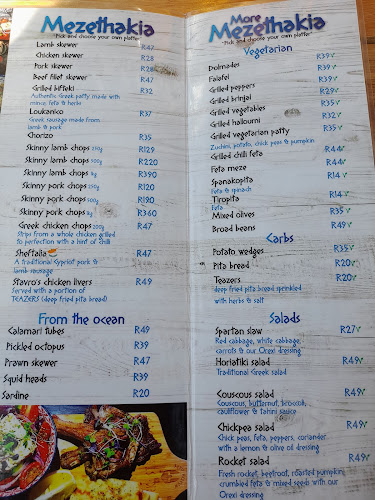 Mezethakia
"Pick and choose your own platter"
Lamb skewer R47
Chicken skewer R28
Pork skewer R28
Beef fillet skewer R47
Grilled bifteki R32
Authentic Greek patty made with
mince, feta & herbs
Loukaniko R37
Greek sausage made from
lamb & pork
Chorizo R35
Skinny lamb chops 250g R129
Skinny lamb chops 500g R220
Skinny lamb chops 1kg R390
Skinny pork chops 250g R120
Skinny pork chops 500g R190
Skinny pork chops 1kg R360
Greek chicken chops 200g R47
Strips from a whole chicken grilled
to perfection with a hint of chilli
Sheftalia R47
A traditional Cypriot pork &
lamb sausage
Stavro's chicken livers R49
Served with a portion of
TEAZERS (deep fried pita bread)
From the ocean
Calamari tubes R49
Pickled octopus R39
Prawn skewer R47
Squid heads R39
Sardine R20
More
Mezethakia
"Pick and choose your own platter"
Vegetarian
Dolmades R39
Falafel R39
Grilled peppers R29
Grilled brinjal R35
Grilled vegetables R32
Grilled halloumi R37
Grilled vegetarian patty
Zuchini, potato, chick peas & pumpkin
Grilled chilli feta R44
Feta meze R44
Spanakopita R14
Feta & spinach
Tiropita R14
Feta
Mixed olives R35
Broad beans R49
Carbs
Potato wedges R35
Pita bread R20
Teazers R20
deep fried pita bread sprinkled
with herbs & salt
Salads
Spartan slaw R27
Red cabbage, white cabbage,
carrots & our Orexi dressing
Horiatiki salad R49
Traditional Greek salad
Couscous salad R49
Couscous, butternut, broccoli,
cauliflower & tahini sauce
Chickpea salad R49
Chick peas, feta, peppers, coriander
with a lemon & olive oil dressing
Rocket salad R49
Fresh rocket, beetroot, roasted pumpkin,
crumbled feta & mixed seeds with our
Orexi dressing